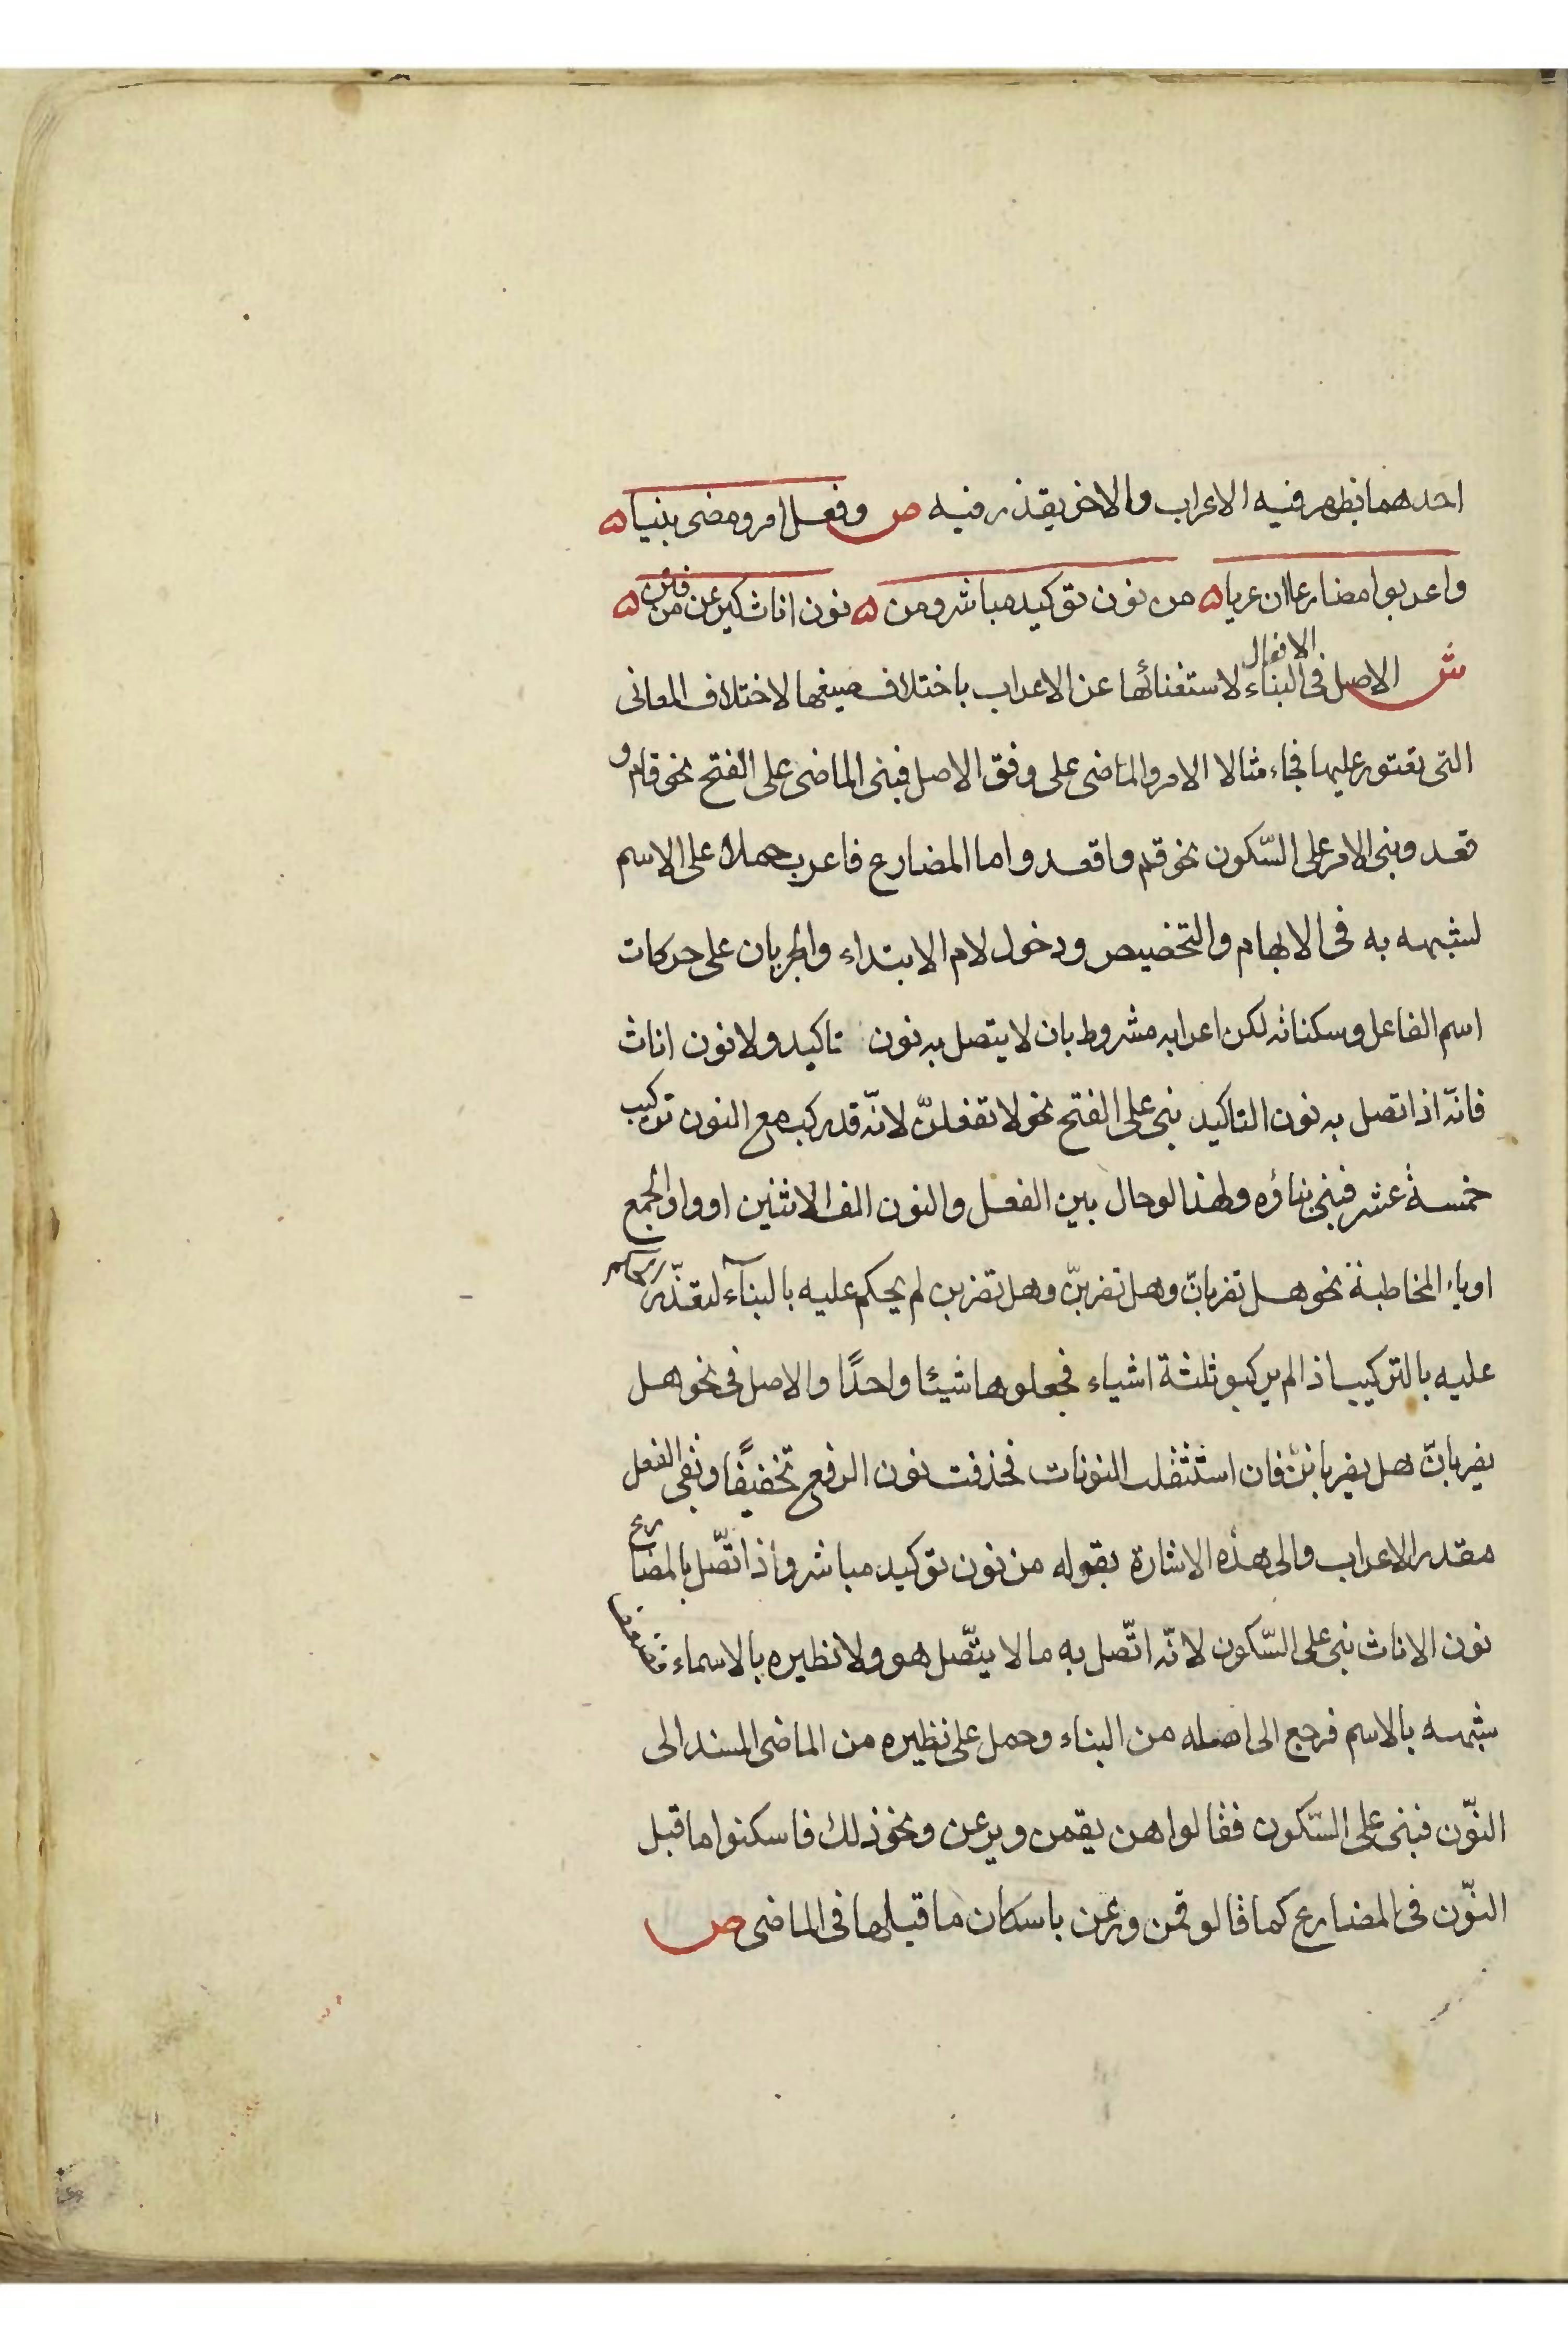 احدهما يظهر فيه الاعراب والاخر يقدر فيه ص وفعل امر ومضى بنيا ه
واعربوا مضارعا ان عريا ه من نون توكيد مباشر ومن ه نون اناث كيرعن من فتن ه
ش الاصل فى الافعال البناء لاستغنائها عن الاعراب باختلاف صيغها لاختلاف المعانى
التى تعتور عليها فجاء مثالا الامر والماضى على وفق الاصل فبنى الماضى على الفتح نحو قام و
قعد وبنى الامر على السّكون نحو قم واقعد واما المضارع فاعرب حملا على الاسم
لشبهه به فى الابهام والتخصيص ودخول لام الابتداء والجريان على حركات
اسم الفاعل وسكناته لكن اعرابه مشروط بان لا يتصل به نون تاكيد ولا نون اناث
فانّه اذا اتصل به نون التاكيد بنى على الفتح نحو لا تفعلنّ لانّه قد ركب مع النون تركيب
خمسة عشر فبنى بناؤه ولهذا لو حال بين الفعل والنون الف الاثنين او واو الجمع
او ياء المخاطبة نحو هل تضربانّ وهل تضربنّ وهل تضربن لم يحكم عليه بالبنآء لتعذّر
عليه بالتركيب اذ لم يركبو ثلثة اشياء فجعلوها شيئا واحدًا والاصل فى نحو هل
يضربانّ هل يضربانن فان استثقلت النونات فحذفت نون الرفع تخفيفًا وبقى الفعل
مقدر الاعراب والى هذه الاشارة بقوله من نون توكيد مباشر واذا اتّصل بالمضارع
نون الاناث بنى على السّكون لانّه اتّصل به ما لا يتّصل هو ولا نظيره بالاسماء
شبهه بالاسم فرجع الى اصله من البناء وحمل على نظيره من الماضى المسند الى
النّون فبنى على السّكون فقالوا هن يقمن ويرعن ونحو ذلك فاسكنوا ما قبل
النّون فى المضارع كما قالو قمن ورعن باسكان ما قبلها فى الماضى ص